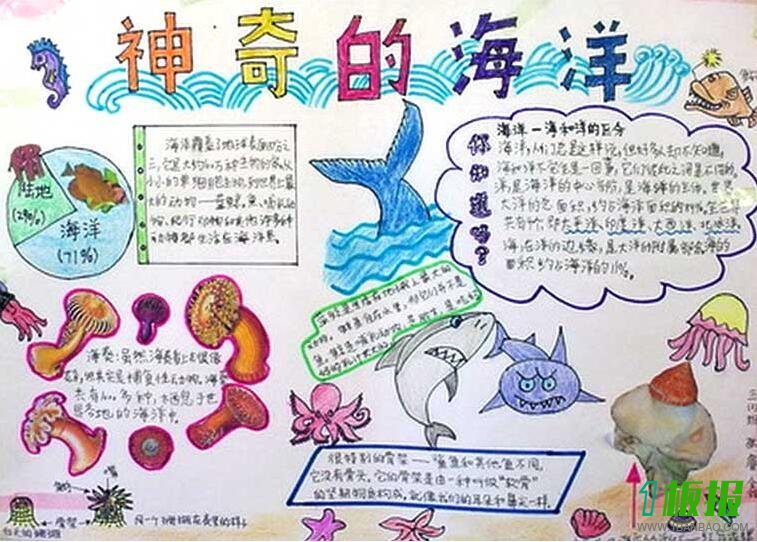 神奇的海洋
陆地
(29%)
海洋
(71%)
海洋覆盖了地球表面四分之
三,它是大约
小小的单细胞生物到世界上最
大的动物——蓝鲸,鱼、哺乳动
物、爬行动物和其他许多种
动物都生活在海洋里。
你知道吗?
海洋—海和洋的区分
海洋,人们总是这样说,但好多人却不知道,
海和洋不它全是一回事,它们彼此之间是不相同的。
洋,是海洋的中心部分,是海洋的主体。世界
大洋的总面积,约占海洋面积的
共有个,即太平洋、印度洋、大西洋、北冰洋。
海,在洋的边缘,是大洋的附属部分。海的
面积约占海洋的11%。
蓝鲸是生活在地球上最大的
动物,鲸鱼住在水里,
鱼。鲸是哺乳动物,
海葵:虽然海葵看上去很像
花朵,但其实它是捕食性动物。海葵
共有1000多种,栖息于世
界各地的海洋中。
很特别的骨架——鲨鱼和其他鱼不同,
它没有骨头,它的骨架是由一种叫做“软骨”
的坚韧物质构成,就像我们的耳朵和鼻尖一样。
嘴
骨架
白天的珊瑚
1板报
WWW.1BANBAO.COM